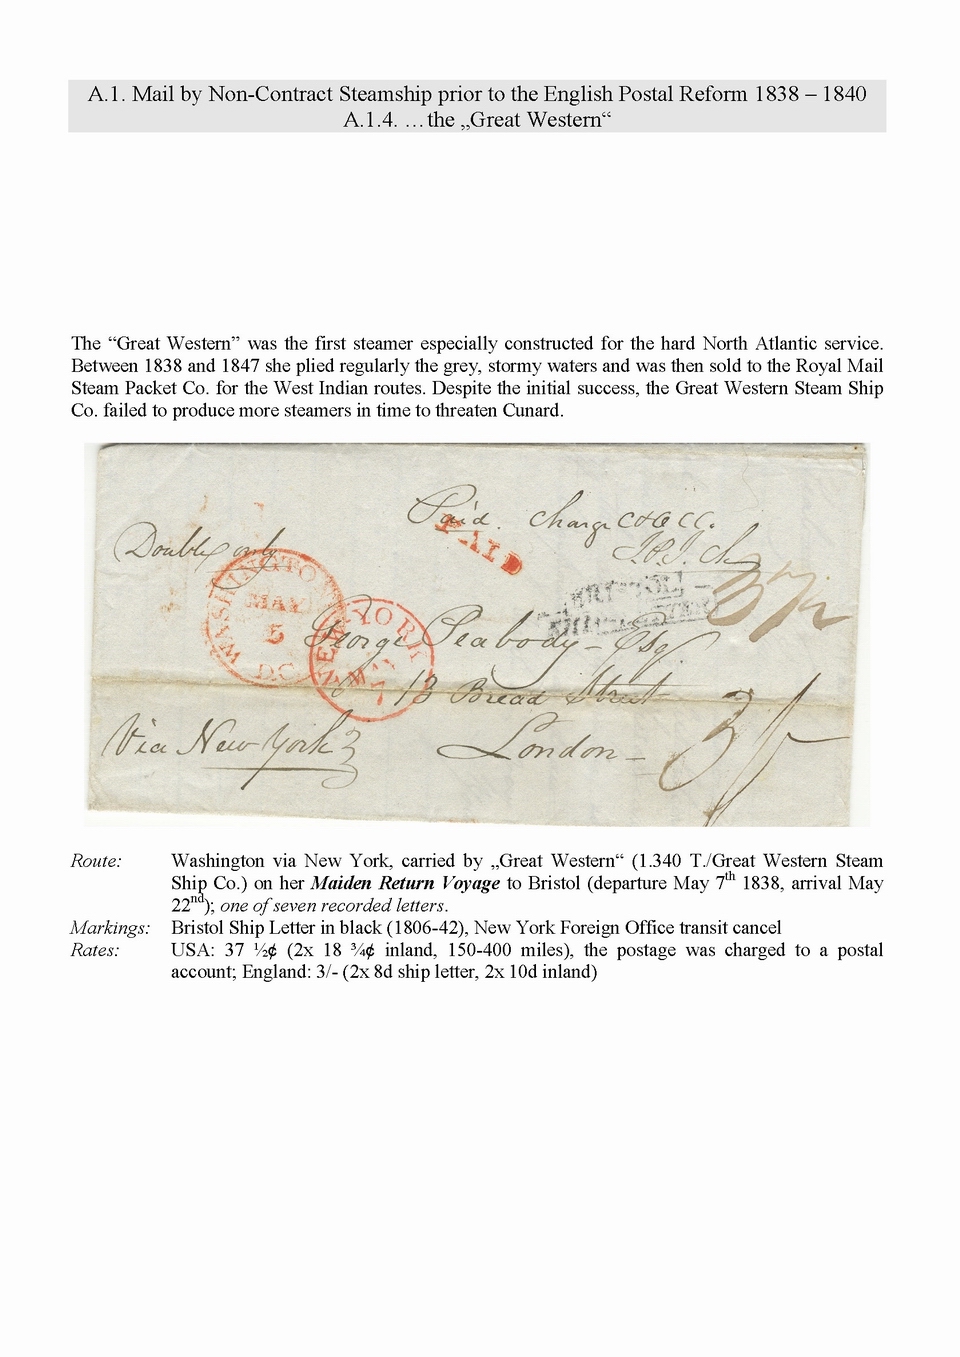 A.1. Mail by Non-Contract Steamship prior to the English Postal Reform 1838 – 1840
A.1.4. …the „Great Western“
The “Great Western” was the first steamer especially constructed for the hard North Atlantic service.
Between 1838 and 1847 she plied regularly the grey, stormy waters and was then sold to the Royal Mail
Steam Packet Co. for the West Indian routes. Despite the initial success, the Great Western Steam Ship
Co. failed to produce more steamers in time to threaten Cunard.
Paid. Charge
PAID
Double only
WASHINGTON
MAY
5
D.C.
BRISTOL
37½
NEW-YORK
MAY
7
George Peabody – Esq
13 Bread Street
Via New York
London –
3/
Route: Washington via New York, carried by „Great Western“ (1.340 T./Great Western Steam
Ship Co.) on her Maiden Return Voyage to Bristol (departure May 7th 1838, arrival May
22nd); one of seven recorded letters.
Markings: Bristol Ship Letter in black (1806-42), New York Foreign Office transit cancel
Rates: USA: 37 ½¢ (2x 18 ¾¢ inland, 150-400 miles), the postage was charged to a postal
account; England: 3/- (2x 8d ship letter, 2x 10d inland)